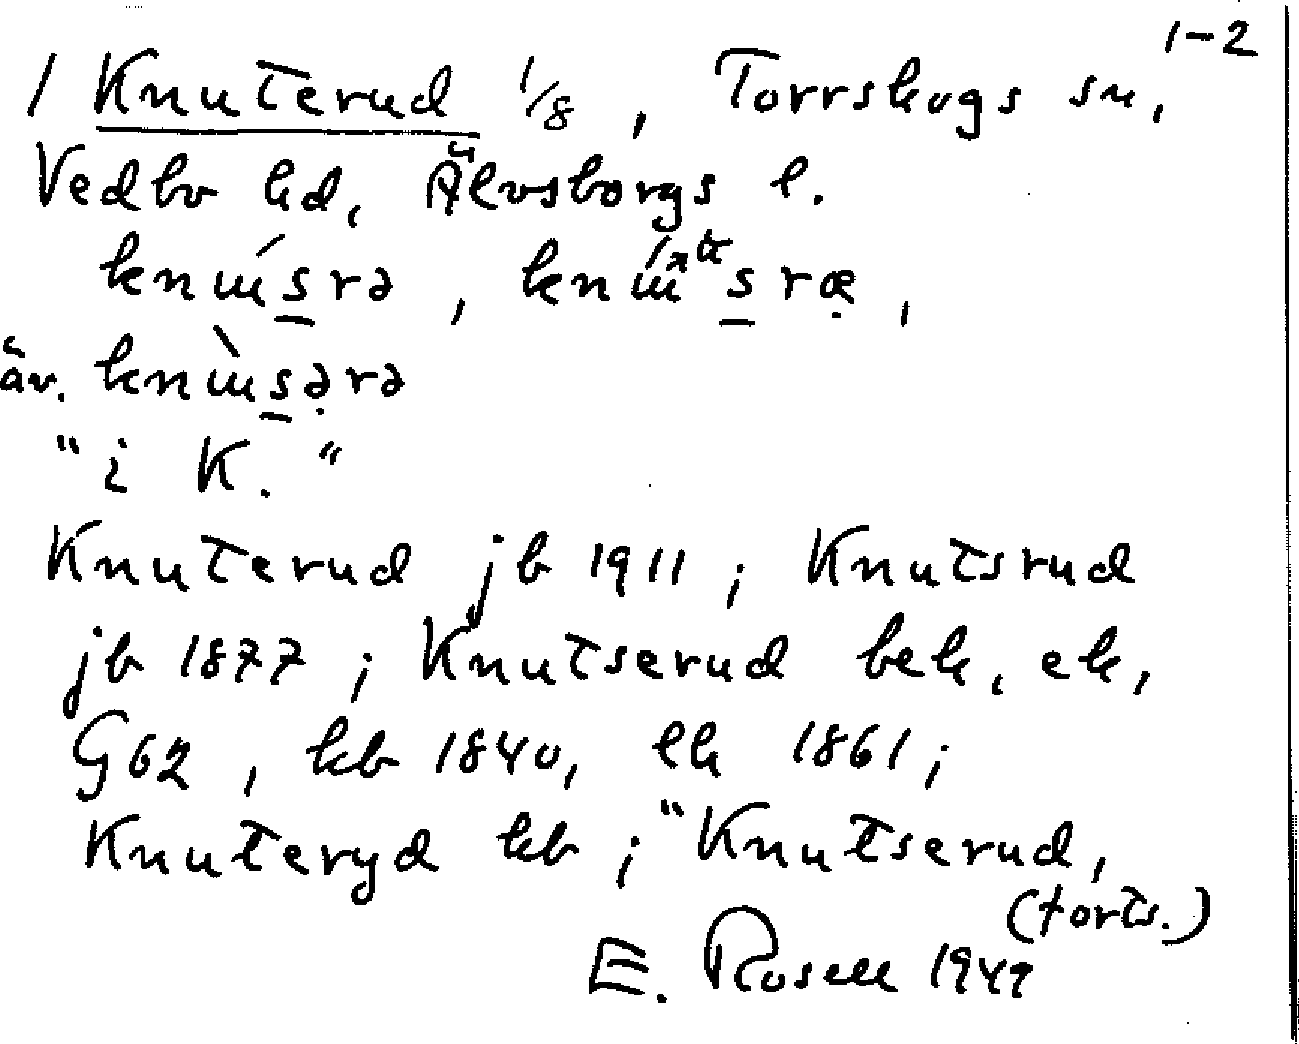 1-2
1 Knuterud 1/8, Torrskogs sn,
Vedbo hd, Älvsborgs l.
äv.
"i K."
Knuterud jb 1911; Knutsrud
jb 1877; Knutserud bek, ek,
G62, kb 1840, ek 1861;
Knuteryd kb; "Knutserud,
(forts.)
E. Rosell 1949